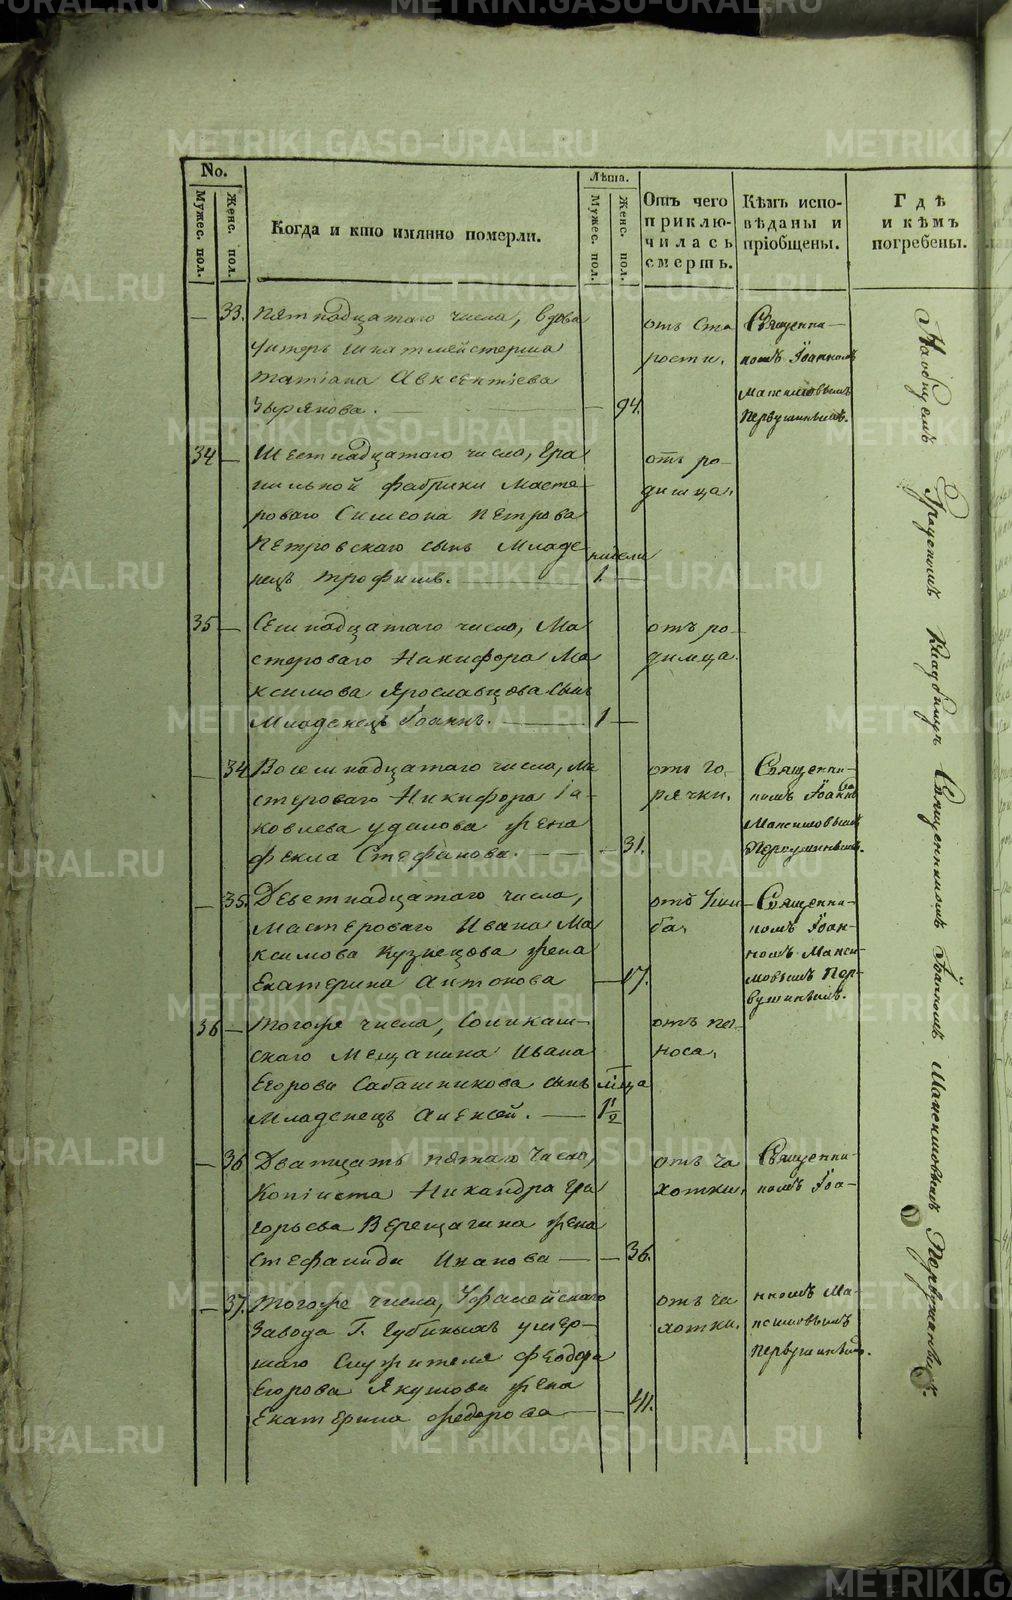 No.
Мужес. пол.
Женс. пол.
Когда и кто имянно померли.
Лѣта.
Мужес. пол.
Женс. пол.
Отъ чего
приклю-
чилась
смерть.
Кѣмъ испо-
вѣданы и
пріобщены.
Гдѣ
и кѣмъ
погребены.
— 33. Пятнадцатаго числа, вдова
Унтеръ Шихтмейстерша
Татіана Авксентіева
Зырянова. — — 94.
отъ ста
рости.
Священни-
комъ Іоанномъ
Максимовымъ
Первушинымъ.
34 — Шестнадцатаго числа, Гра
нильной фабрики Масте-
роваго Симеона Петрова
Петровскаго сынъ Младе
нецъ Трофимъ.
недели
1. —
отъ ро-
димца.
35 — Семнадцатаго числа, Ма
стероваго Никифора Ма
ксимова Ярославцова сынъ
Младенецъ Іоаннъ. — 1 —
отъ ро-
димца.
— 34 Восемнадцатаго числа, Ма
стероваго Никифора Іа-
ковлева Удалова жена
Фекла Стефанова. — — 31.
отъ го-
рячки.
Священни-
комъ Іоанно
Максимовымъ
Первушинымъ.
— 35. Деветнадцатаго числа,
Мастероваго Ивана Ма
ксимова Кузнецова жена
Екатерина Антонова — 17.
отъ Уши-
ба.
Священни-
комъ Іоан-
номъ Макси-
мовымъ Пер-
вушинымъ.
36 — Тогоже числа,
скаго Мещанина Ивана
Егорова Сабашникова сынъ
Младенецъ Алексей. —
мца
1 1/2
отъ по-
носа.
— 36 Дватцать пятаго числа,
Копіиста Никандра Гри
горьева Верещагина жена
Стефанида Иванова — — 36.
отъ ча
хотки.
Священни-
комъ Іоа-
— 37. Тогоже числа, Уфалейскаго
Завода Г. Губиныхъ умер-
шаго Служителя Феодора
Егорова Якушова жена
Екатерина Федорова — — 41.
отъ ча
хотки.
нномъ Ма-
ксимовымъ
Первушинымъ.
На общемъ Градскомъ Кладбищѣ Священникомъ Іоанномъ Максимовымъ Первушинымъ.
METRIKI.GASO-URAL.RU